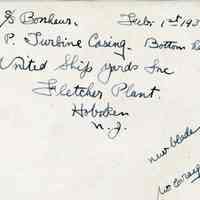 SS Bonheur. Febr 1st 193
P. Turbine Casing. Bottom
United Ship Yards Inc
Fletcher Plant.
Hoboken
N. J.
new blade
no